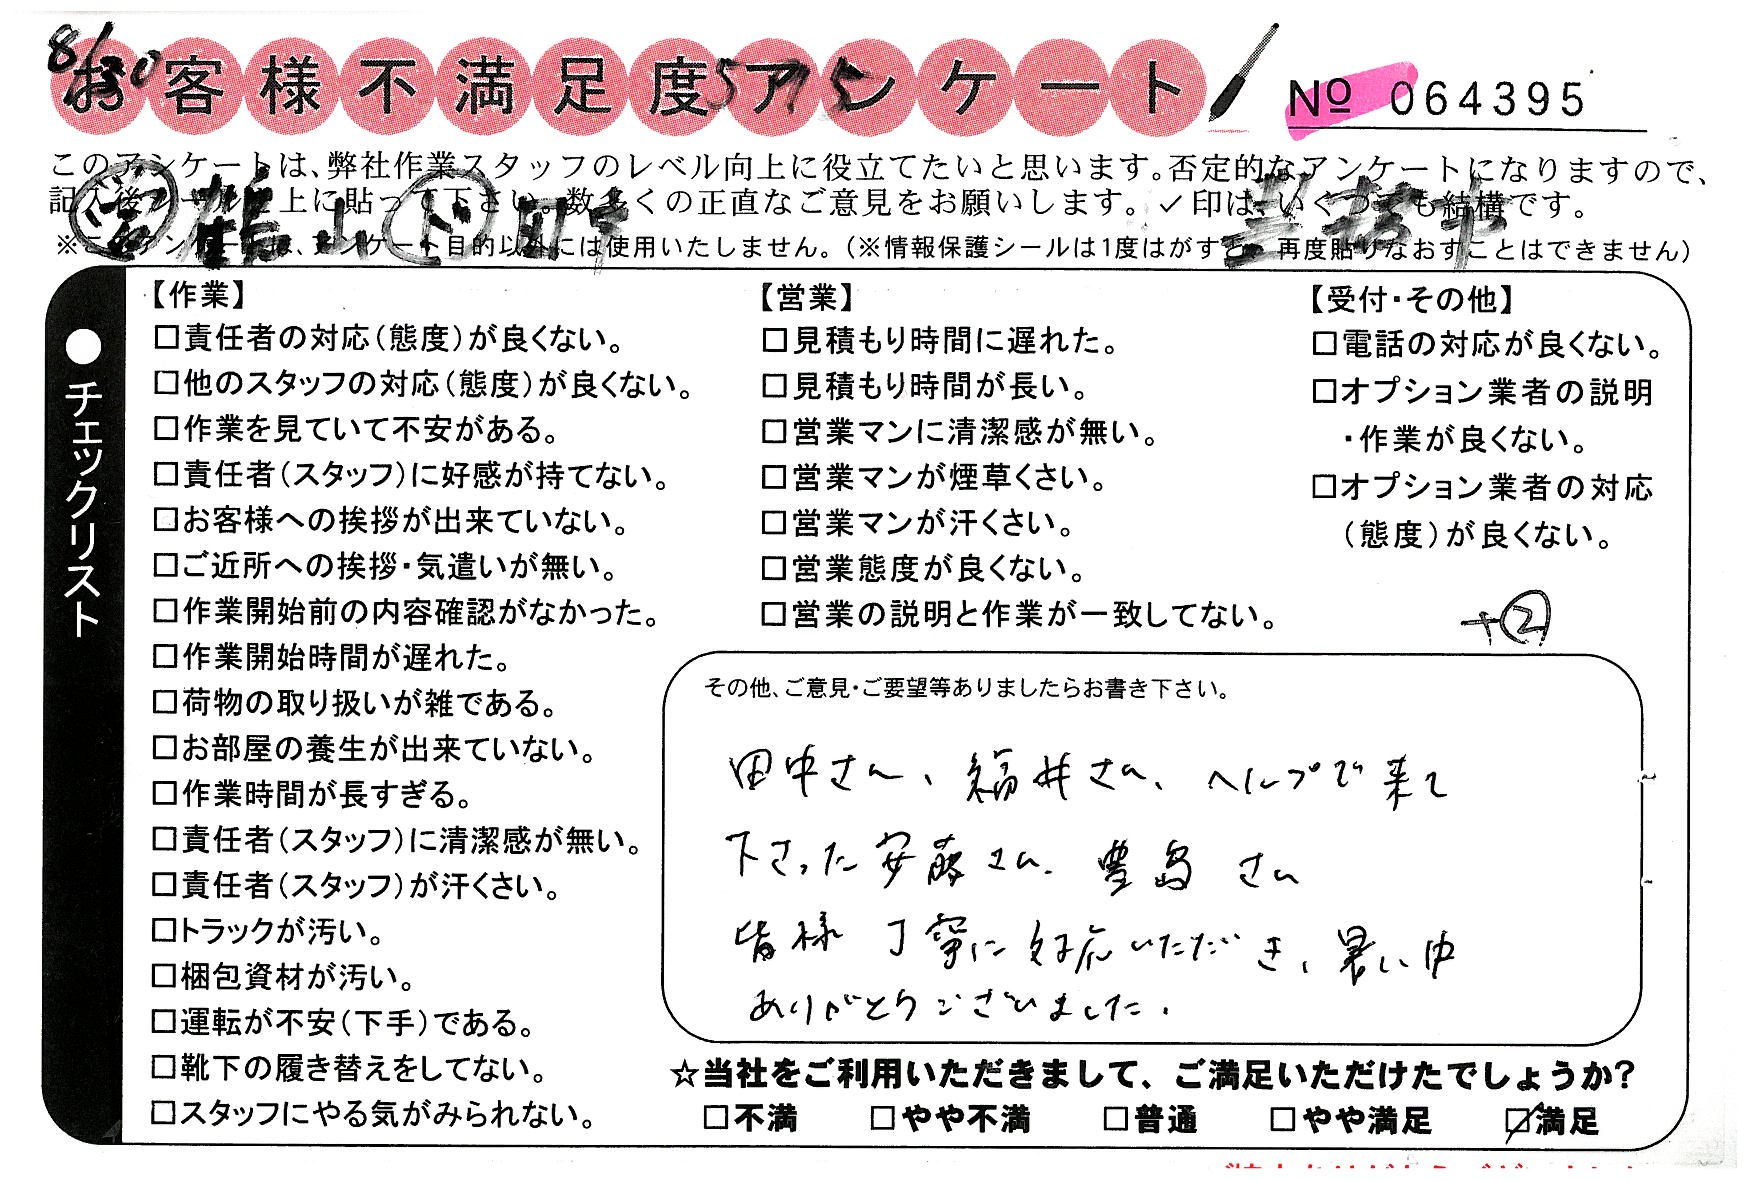 8/30
お客様不満足度アンケート
№ 064395
このアンケートは、弊社作業スタッフのレベル向上に役立てたいと思います。否定的なアンケートになりますので、
記入後シールを上に貼って下さい。数多くの正直なご意見をお願いします。✓印は、いくつでも結構です。
※このアンケートは、アンケート目的以外には使用いたしません。(※情報保護シールは1度はがすと、再度貼りなおすことはできません)
●チェックリスト
【作業】
□責任者の対応(態度)が良くない。
□他のスタッフの対応(態度)が良くない。
□作業を見ていて不安がある。
□責任者(スタッフ)に好感が持てない。
□お客様への挨拶が出来ていない。
□ご近所への挨拶・気遣いが無い。
□作業開始前の内容確認がなかった。
□作業開始時間が遅れた。
□荷物の取り扱いが雑である。
□お部屋の養生が出来ていない。
□作業時間が長すぎる。
□責任者(スタッフ)に清潔感が無い。
□責任者(スタッフ)が汗くさい。
□トラックが汚い。
□梱包資材が汚い。
□運転が不安(下手)である。
□靴下の履き替えをしてない。
□スタッフにやる気がみられない。
【営業】
□見積もり時間に遅れた。
□見積もり時間が長い。
□営業マンに清潔感が無い。
□営業マンが煙草くさい。
□営業マンが汗くさい。
□営業態度が良くない。
□営業の説明と作業が一致してない。
【受付・その他】
□電話の対応が良くない。
□オプション業者の説明
・作業が良くない。
□オプション業者の対応
(態度)が良くない。
+②
その他、ご意見・ご要望等ありましたらお書き下さい。
田中さん、福井さん、ヘルプで来て
下さった安藤さん、豊島さん
皆様 丁寧に対応いただき、暑い中
ありがとうございました。
☆当社をご利用いただきまして、ご満足いただけたでしょうか?
□不満 □やや不満 □普通 □やや満足 ☑満足